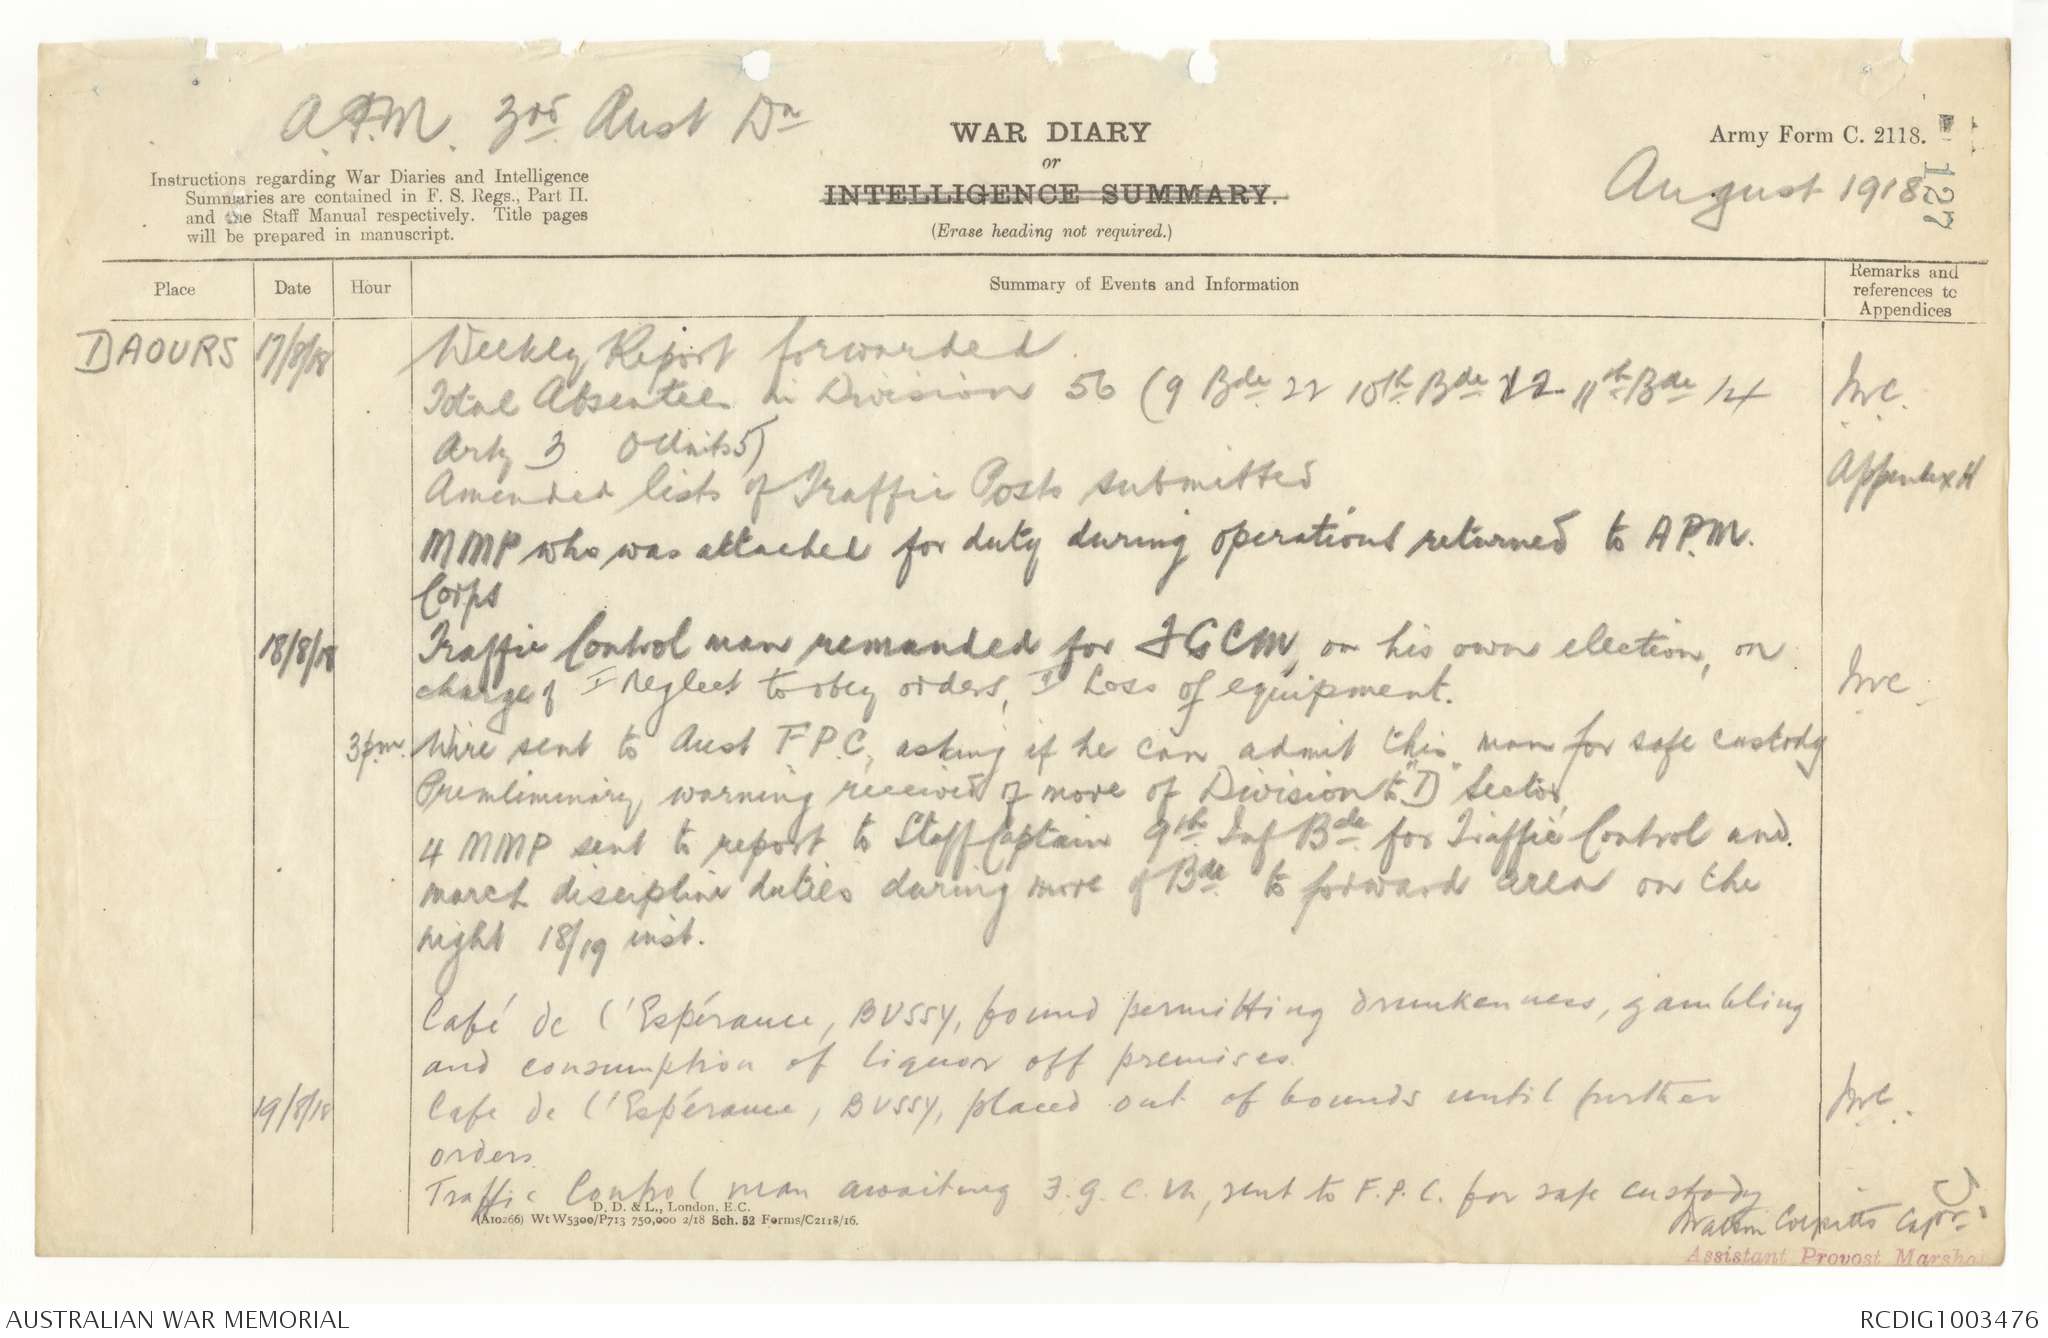 A.P.M. 3rd Aust Dn
WAR DIARY
or
INTELLIGENCE SUMMARY.
(Erase heading not required.)
Army Form C. 2118.
August 1918
127
Instructions regarding War Diaries and Intelligence
Summaries are contained in F. S. Regs., Part II.
and the Staff Manual respectively. Title pages
will be prepared in manuscript.
Place Date Hour Summary of Events and Information Remarks and references to Appendices
DAOURS 17/8/18 Weekly Report forwarded
Total Absentees in Division 56 (9 Bde 22 10th Bde 12 11th Bde 14
Arty 3 O Units 5)
Amended lists of Traffic Posts submitted Appendix H
MMP who was attached for duty during operations returned to A.P.M.
Corps
18/8/18 Traffic Control man remanded for FGCM, on his own election, on
charge of I neglect to obey orders, II Loss of equipment.
3pm. Wire sent to Aust F.P.C., asking if he can admit this man for safe custody
Premliminary warning received of move of Division to "D" Sector
4 MMP sent to report to Staff Captain 9th Inf Bde for Traffic Control and
march discipline duties during move of Bde to forward area on the
night 18/19 inst.
Café de l'Espérance, BUSSY, found permitting drunkenness, gambling
and consumption of liquor off premises.
19/8/18 Cafe de l'Espérance, BUSSY, placed out of bounds until further
orders.
Traffic Control man awaiting F.G.C.M, sent to F.P.C. for safe custody
D. D. & L., London, E.C.
(A10266) Wt W5300/P713 750,000 2/18 Sch. 52 Forms/C2118/16.
Capt
Assistant Provost Marshal
AUSTRALIAN WAR MEMORIAL
RCDIG1003476